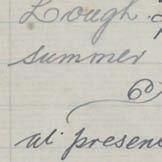 Lough
summer
at presen